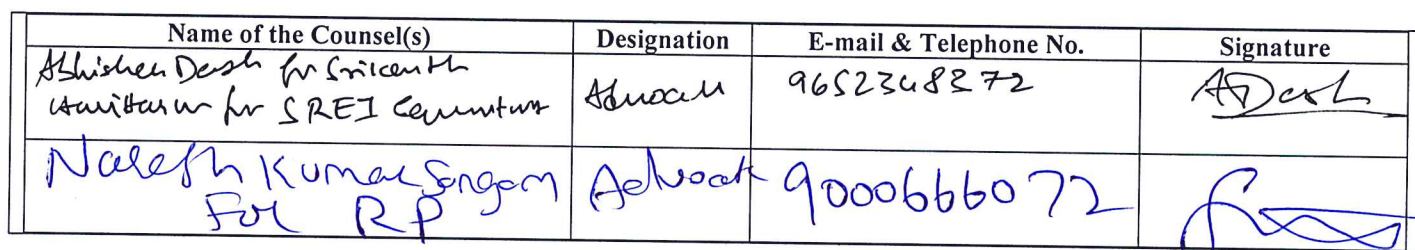 Name of the Counsel(s) Designation E-mail & Telephone No. Signature
Abhishek Dash for Srikanth
Hariharan for SREI Equipment Advocate 9652348272 ADash
Naresh Kumar Sangam Advocate 9000666072
For RP